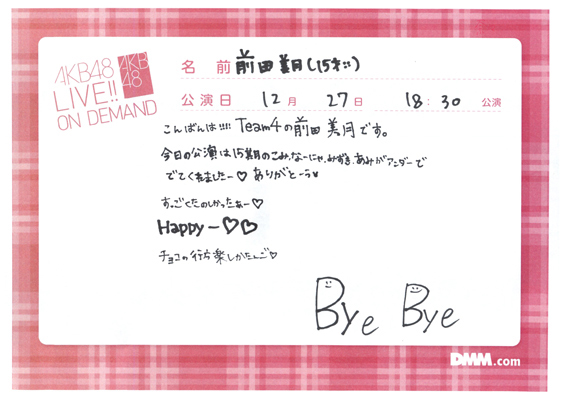 AKB48
LIVE!!
ON DEMAND
AKB
48
名 前 前田美月(15才)
公演日 12月 27日 18:30 公演
こんばんは!!!! Team4の前田美月です。
今日の公演は15期のこみ、なーにゃ、みずき、あみがアンダーで
でてくれましたー♡ ありがとーう
すっごくたのしかったぁー♡
Happyー♡♡
チョコの行方楽しかたんご♡
Bye Bye
DMM.com